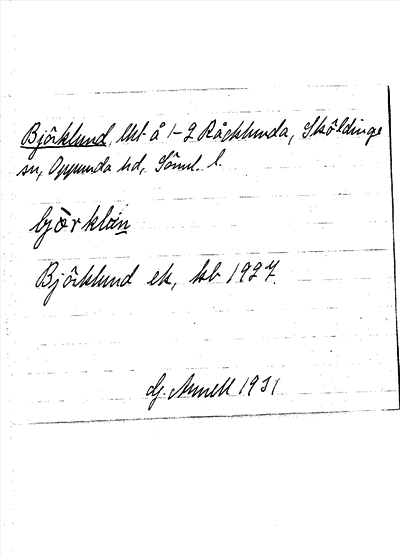 Björklund, lht å 1-2 Råcklunda, Sköldinge
sn, Oppunda hd, Söml. l.
bjòrklan
Björklund ek, kb 1927.
G. Annell 1931